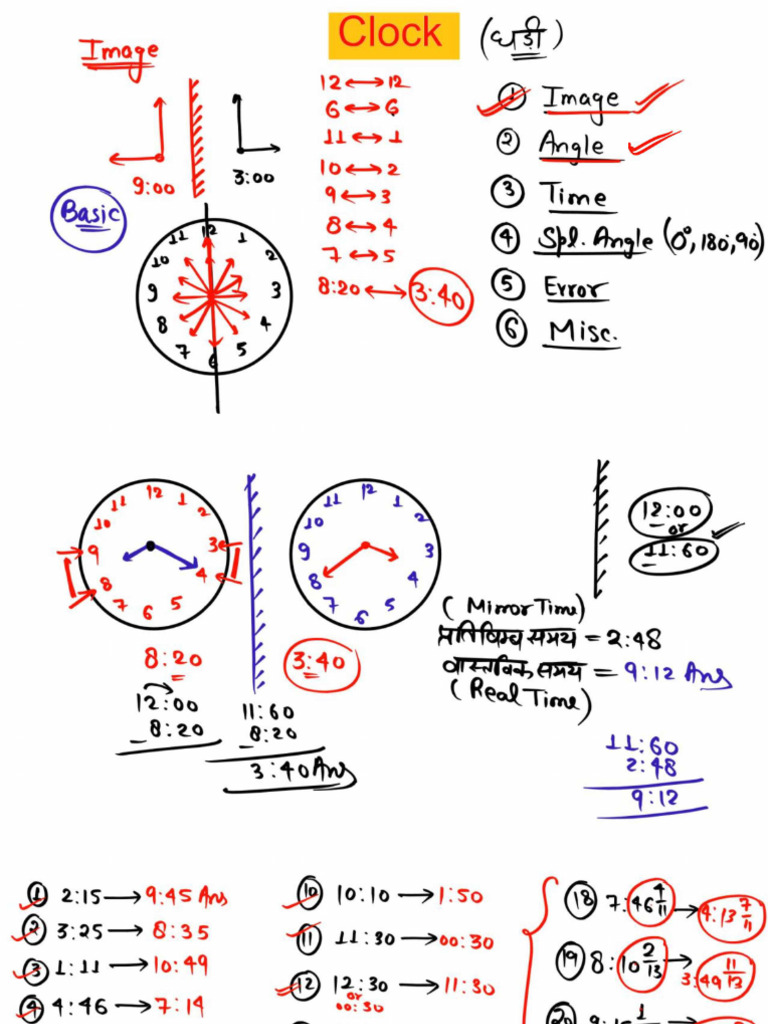 Clock (घड़ी)
Image
9:00
3:00
Basic
12 11 1 10 2 9 3 8 4 7 5 6
12 ↔ 12
6 ↔ 6
11 ↔ 1
10 ↔ 2
9 ↔ 3
8 ↔ 4
7 ↔ 5
8:20 ↔ 3:40
① Image
② Angle
③ Time
④ Spl. Angle (0°, 180°, 90°)
⑤ Error
⑥ Misc.
12 11 1 10 2 9 3 8 4 7 5 6
8:20
12:00
- 8:20
12 11 1 10 2 9 3 8 4 7 5 6
3:40
11:60
- 8:20
3:40 Ans
12:00
or
11:60
(Mirror Time)
प्रतिबिम्ब समय = 2:48
वास्तविक समय = 9:12 Ans
(Real Time)
11:60
2:48
9:12
① 2:15 → 9:45 Ans
② 3:25 → 8:35
③ 1:11 → 10:49
④ 4:46 → 7:14
⑩ 10:10 → 1:50
⑪ 11:30 → 00:30
⑫ 12:30 → 11:30
or
00:30
⑱ 7:46 4/11 → 4:13 7/11
⑲ 8:10 2/13 → 3:49 11/13